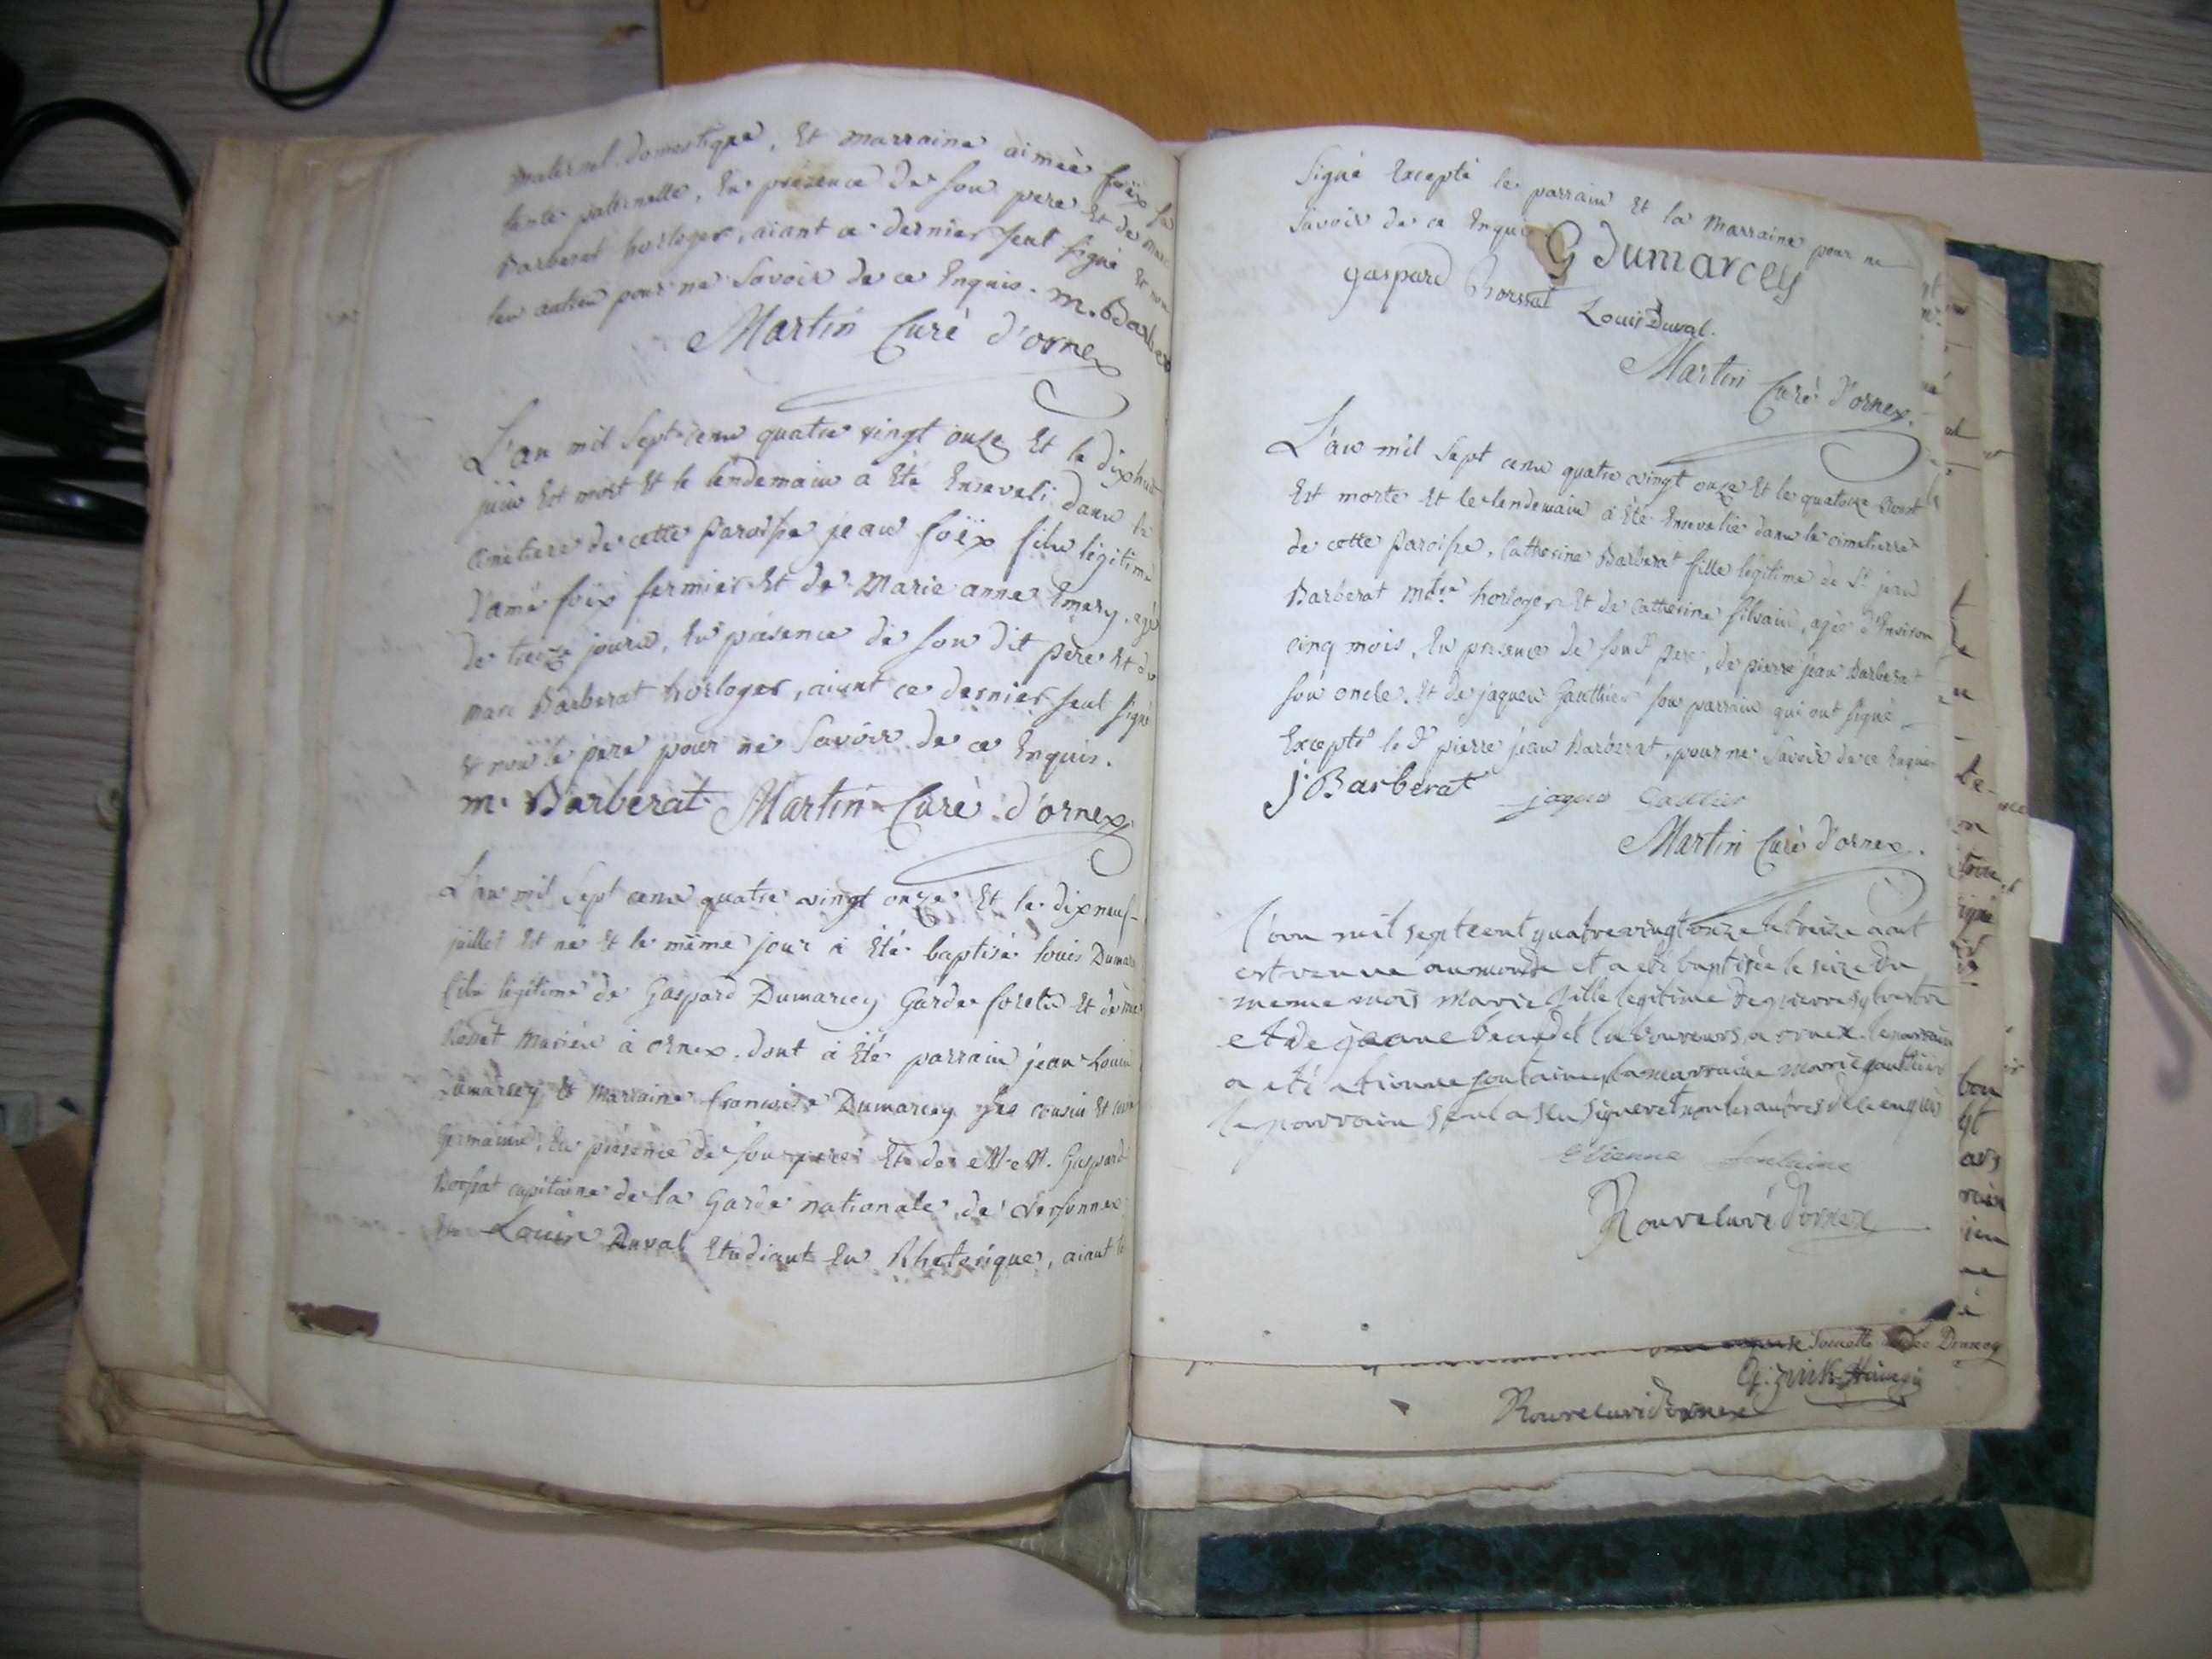 maternel domestique, Et marraine aimèe foëx sa
tante paternelle, En présence de son pere Et de marc
Barberat horloger, aiant ce dernier seul signé Et non
les autres pour ne savoir de ce Enquis. m. Barberat
Martin Curé d'ornex
L'an mil Sept cens quatre vingt onze Et le dixhuit
juin Est mort Et le lendemain a Eté Enseveli dans le
cimetiere de cette Paroisse jean foëx fils légitime
d'amé foëx fermier Et de Marie anne Emery, agé
de treize jours, En présence de son dit père Et de
marc Barberat horloger, aiant ce dernier seul signé
& non le pere pour ne Savoir de ce Enquis.
m. Barberat Martin Curé d'ornex
L'an mil Sept cens quatre vingt onze Et le dixneuf
juillet Est né Et le même jour a Eté baptisé louis Dumar
fils légitime de Gaspard Dumarcey Garde forets Et de
Rosset Mariés à ornex. dont a Eté parrain jean Louis
Dumarcey & Marraine francoise Dumarcey ses cousin Et
Germains, En présence de son pere Et de M.M. Gaspard
Borssat capitaine de la Garde nationale de Versonnex
Et Louis Duval Etudiant En Rhetorique, aiant
Signé Excepté le parrain Et la Marraine pour ne
Savoir de ce Enquis G Dumarcey
gaspard Borssat Louis Duval.
Martin Curé d'ornex.
L'an mil Sept cens quatre vingt onze Et le quatorze Aoust
Est morte Et le lendemain a Eté Ensevelie dans le cimetierre
de cette Paroisse, Catherine Barberat fille légitime de Sr. jean
Barberat md. horloger Et de Catherine Silvain, agée d'Environ
cinq mois, En presence de sond. pere, de pierre jean Barberat
son oncle, Et de jaques Gautthier son parrain qui ont signé
Excepté led. pierre jean Barberat, pour ne Savoir de ce Enquis
j: Barberat jaques Gauttier
Martin Curé d'ornex.
l'an mil sept cent quatre vingt onze le treize aout
est venue au monde et a eté baptisée le seize du
meme mois marie fille legitime de pierre sylvestre
et de jeanne beaudet laboureurs a ornex. le parrain
a eté etienne fontaine, la marraine marie gauthier
le parrain seul a sçu signer et non les autres de ce enquis
Etienne fontaine
Rouve curé d'ornex
Rouve curé d'ornex